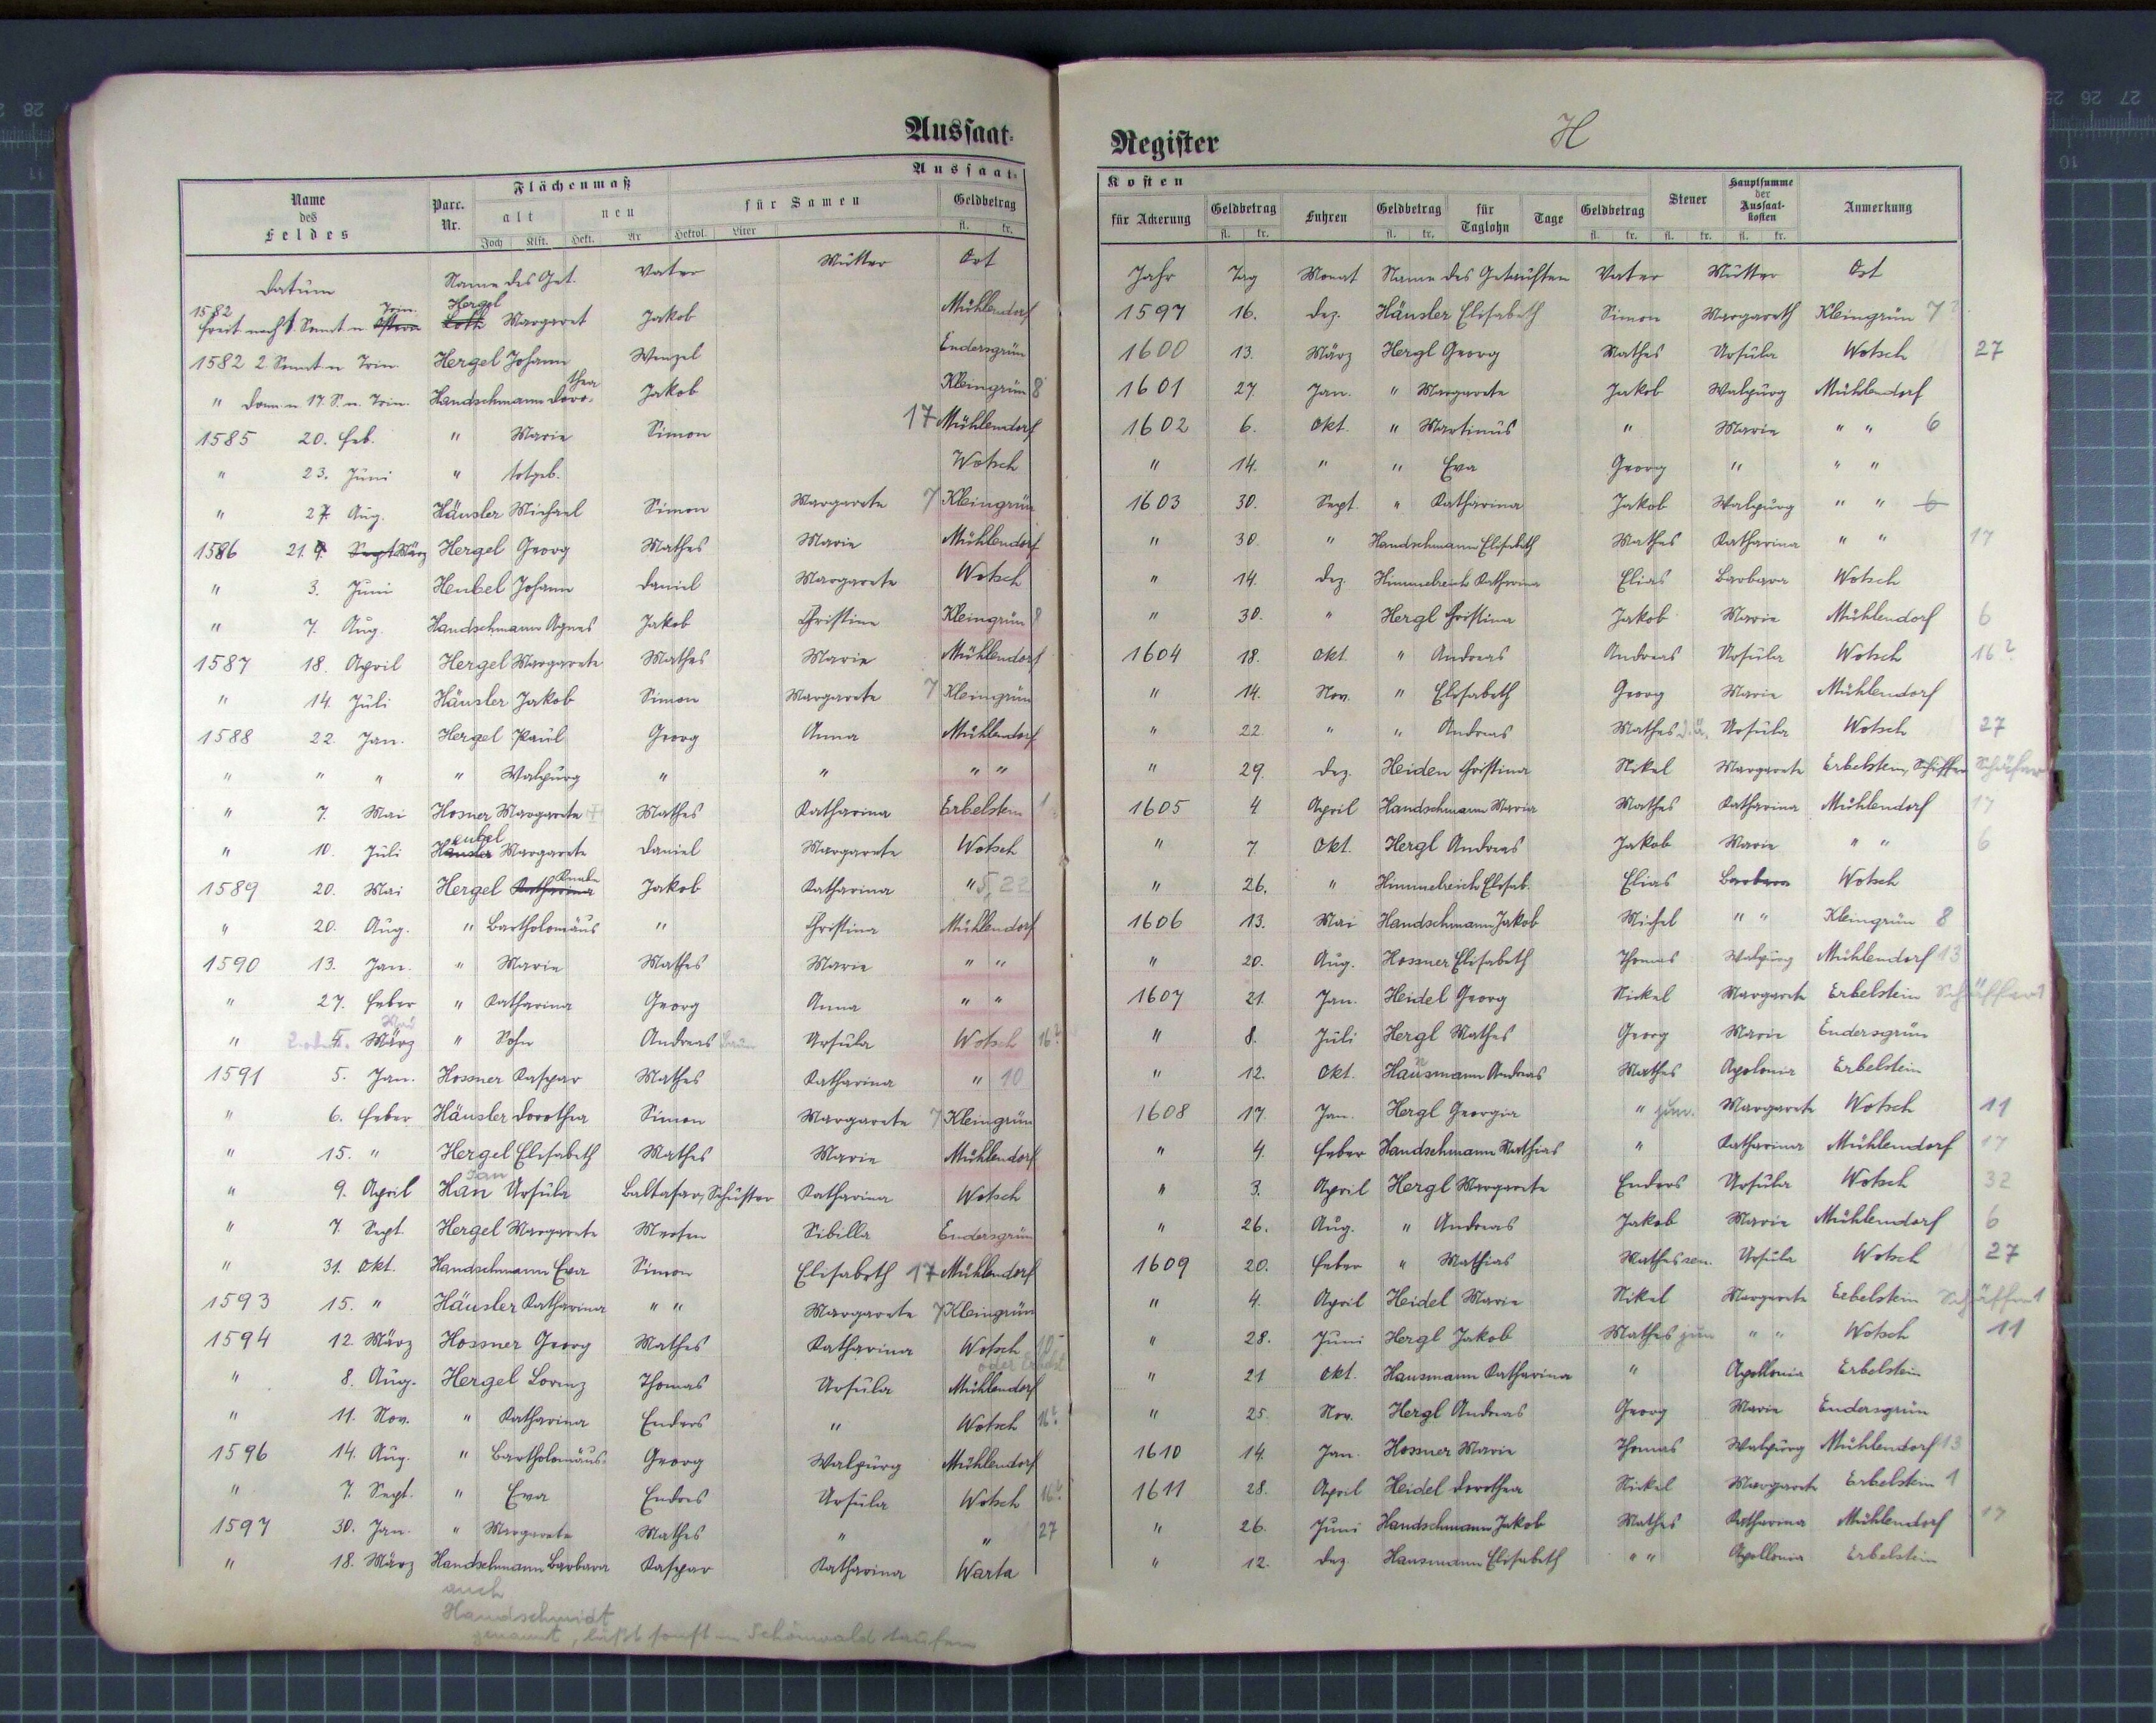 Aussaat-
Aussaat-
Name des Feldes
Parz. Nr.
Flächenmaß
alt
neu
Joch Klft. Hekt. Ar
für Samen
Hektol. Liter
Geldbetrag
fl. kr.
Datum Name des Get. Vater Mutter Ort
1582 Freit nach 1. Sonnt n. Ostern Trin. Loth Hergel Margaret Jakob Mühlendorf
1582 2. Sonnt. n Trin. Hergel Johann Wenzel Endersgrün
" Donn. n. 17. S. n. Trin. Handschmann Dorothea Jakob Kleingrün 8
1585 20. Feb. " Marie Simon 17 Mühlendorf
" 23. Juni " totgeb. Wotsch
" 27. Aug. Häusler Michael Simon Margarete 7 Kleingrün
1586 21. 9. Sept. März Hergel Georg Mathes Marie Mühlendorf
" 3. Juni Henbel Johann Daniel Margarete Wotsch
" 7. Aug. Handschmann Agnes Jakob Christine Kleingrün 8
1587 18. April Hergel Margarete Mathes Marie Mühlendorf
" 14. Juli Häusler Jakob Simon Margarete 7 Kleingrün
1588 22. Jan. Hergel Paul Georg Anna Mühlendorf
" " " " Walpurg " " " "
" 7. Mai Hosner Margarete Mathes Katharina Erbelstein 1
" 10. Juli Häusler eubel Margarete Daniel Margarete Wotsch
1589 20. Mai Hergel Katharina Knabe Jakob Katharina " 5, 22
" 20. Aug. " Bartholomäus " Christina Mühlendorf
1590 13. Jan. " Marie Mathes Marie " "
" 27. Feber " Katharina Georg Anna " "
" 4. März " Sohn Andreas Ursula Wotsch 16?
1591 5. Jan. Hossner Kaspar Mathes Katharina " 10
" 6. Feber Häusler Dorothea Simon Margarete 7 Kleingrün
" 15. " Hergel Elisabeth Mathes Marie Mühlendorf
" 9. April Han Jan Ursula Baltasar, Schuster Katharina Wotsch
" 7. Sept. Hergel Margarete Merten Sibilla Endersgrün
" 31. Okt. Handschmann Eva Simon Elisabeth 17 Mühlendorf
1593 15. " Häusler Katharina " " Margarete 7 Kleingrün
1594 12. März Hossner Georg Mathes Katharina Wotsch 10
oder Erbelst
" 8. Aug. Hergel Lorenz Thomas Ursula Mühlendorf
" 11. Nov. " Katharina Enders " Wotsch 16?
1596 14. Aug. " Bartholomäus Georg Walpurg Mühlendorf
" 7. Sept. " Eva Endres Ursula Wotsch 16?
1597 30. Jan. " Margarete Mathes " " 27
" 18. März Handschmann Barbara Kaspar Katharina Warta
auch
Handschmidt
genannt, läßt sonst in Schönwald taufen
Register
H
Kosten
für Ackerung
Geldbetrag fl. kr.
Fuhren
Geldbetrag fl. kr.
für Taglohn
Tage
Geldbetrag fl. kr.
Steuer fl. kr.
Hauptsumme der Aussaat-kosten fl. kr.
Anmerkung
Jahr Tag Monat Name des Getauften Vater Mutter Ort
1597 16. Dez. Häusler Elisabeth Simon Margareth Kleingrün 7?
1600 13. März Hergl Georg Mathes Ursula Wotsch 27
1601 27. Jan. " Margarete Jakob Walpurg Mühlendorf
1602 6. Okt. " Martinus " Marie " " 6
" 14. " " Eva Georg " " "
1603 30. Sept. " Katharina Jakob Walpurg " " 6
" 30. " Handschmann Elisabeth Mathes Katharina " " 17
" 14. Dez. Himmelreich Katharina Elias Barbara Wotsch
" 30. " Hergl Christina Jakob Marie Mühlendorf 6
1604 18. Okt. " Andreas Andreas Ursula Wotsch 16?
" 14. Nov. " Elisabeth Georg Marie Mühlendorf
" 22 " " Andreas Mathes d.ä. Ursula Wotsch 27
" 29. Dez. Heiden Christina Nikel Margarete Erbelstein, Schiffer Schäfer
1605 4 April Handschmann Maria Mathes Katharina Mühlendorf 17
" 7. Okt. Hergl Andreas Jakob Marie " " 6
" 26. " Himmelreich Elisab. Elias Barbara Wotsch
1606 13. Mai Handschmann Jakob Michel " " Kleingrün 8
" 20. Aug. Hossner Elisabeth Thomas Walpurg Mühlendorf 13
1607 21. Jan. Heidel Georg Nickel Margarete Erbelstein
" 8. Juli Hergl Mathes Georg Marie Endersgrün
" 12. Okt. Hausmann Andreas Mathes Apolonia Erbelstein
1608 17. Jan. Hergl Georgia " jun. Margarete Wotsch 11
" 4. Feber Handschmann Mathias " Katharina Mühlendorf 17
" 3. April Hergl Margarete Enders Ursula Wotsch 32
" 26. Aug. " Andreas Jakob Marie Mühlendorf 6
1609 20. Feber " Mathias Mathes sen. Ursula Wotsch 27
" 4. April Heidel Marie Nikel Margarete Erbelstein
" 28. Juni Hergl Jakob Mathes jun " " Wotsch 11
" 21 Okt. Hausmann Katharina " Apollonia Erbelstein
" 25 Nov. Hergl Andreas Georg Marie Endersgrün
1610 14. Jan. Hossner Marie Thomas Walpurg Mühlendorf 13
1611 28. April Heidel Dorothea Nickel Margarete Erbelstein 1
" 26. Juni Handschmann Jakob Mathes Katharina Mühlendorf 17
" 12. Dez. Hausmann Elisabeth " " Apollonia Erbelstein